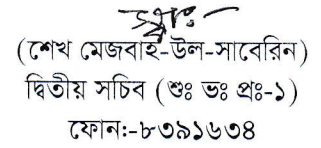 (শেখ মেজবাহ-উল-সাবেরিন)
দ্বিতীয় সচিব (শুঃ ভঃ প্রঃ-১)
ফোন:-৮৩৯১৬৩৪